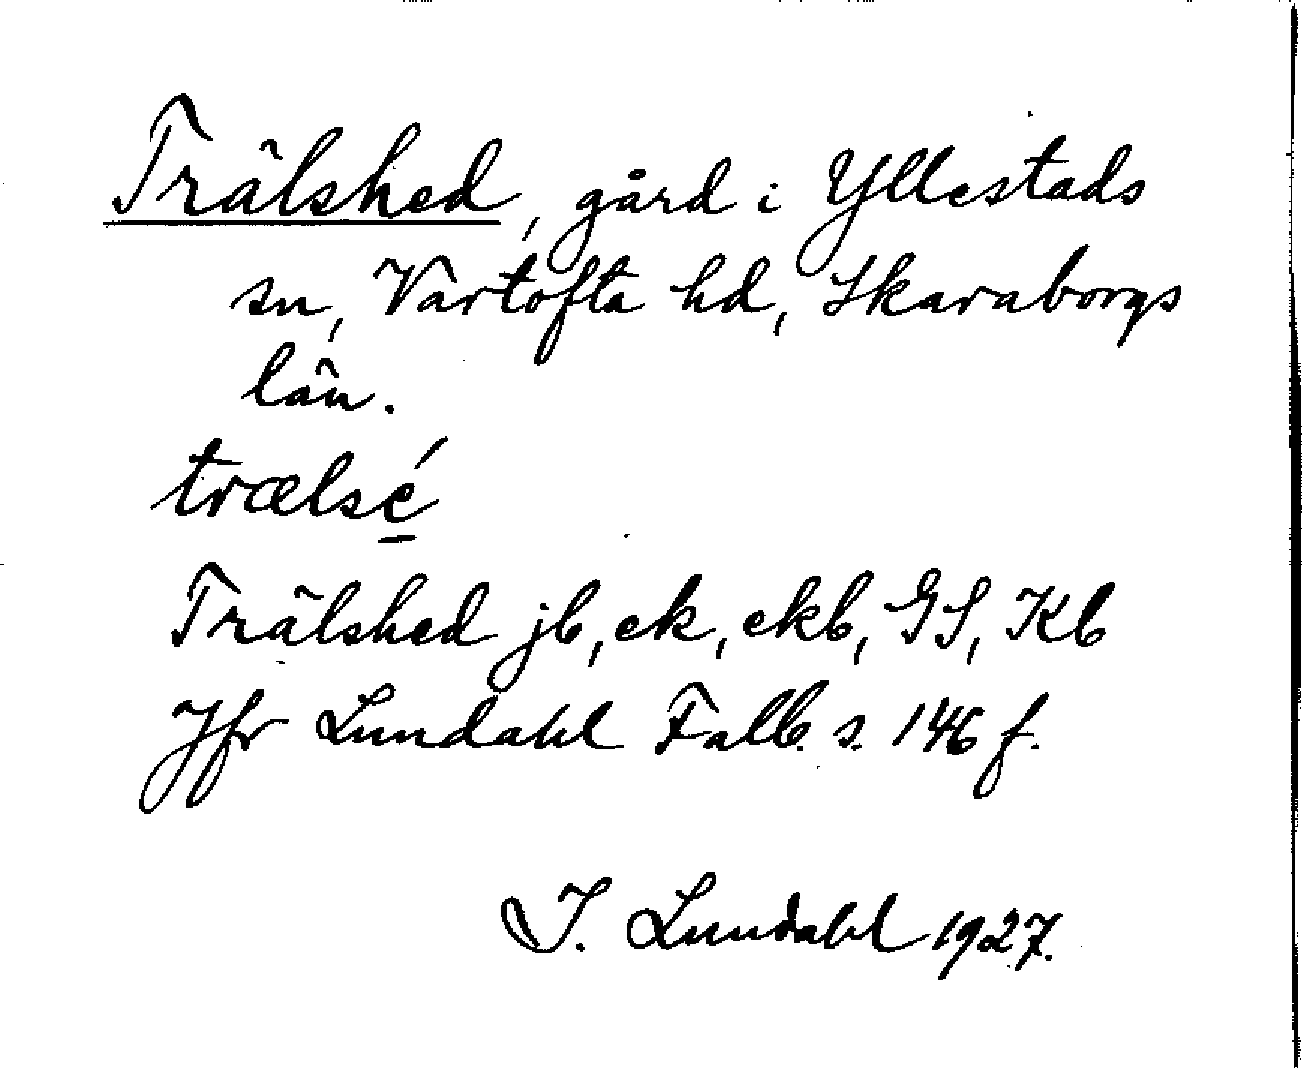 Trälshed, gård i Yllestads
sn, Vartofta hd, Skaraborgs
län.
trælsé
Trälshed jb, ek, ekb, GS, Kb
Jfr Lundahl Falb. s. 146 f.
I. Lundahl 1927.